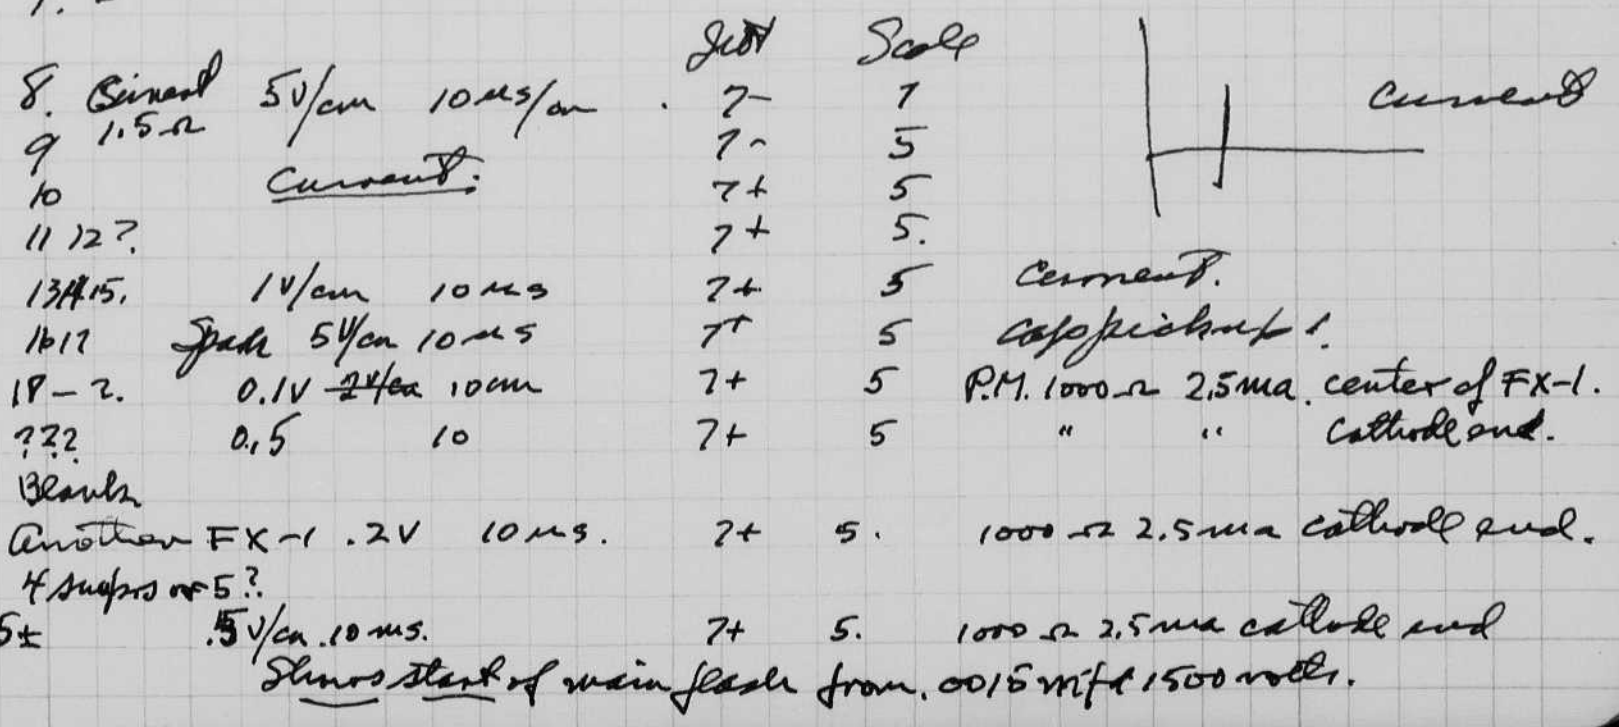 7.
Scale
8. Current 5V/cm 10 μs/cm . 7- 7 Current
1.5Ω
9 7- 5
Current.
10 7+ 5
11 12?. 7+ 5.
13 14 15. 1V/cm 10 μs 7+ 5 Current.
16 17 Spark 5V/cm 10 μs 7+ 5 cap pickup!
18 - ?. 0.1V 2V/cm 10 cm 7+ 5 P.M. 1000 Ω 2.5 ma. center of FX-1.
??? 0.5 10 7+ 5 " " Cathode end.
Blank
Another FX-1 .2V 10 μs. 7+ 5. 1000 Ω 2.5 ma cathode end.
4 snaps or 5?
5± .5V/cm .10 ms. 7+ 5. 1000 Ω 2.5 ma cathode end
Shows start of main flash from .0015 mfd 1500 volts.